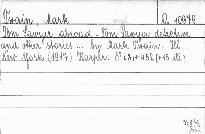 Twain, Mark
Tom Sawyer abroad - Tom Sawyer detective
and other stories ... by Mark Twain. Ill
New York (1917) Harper. 8°